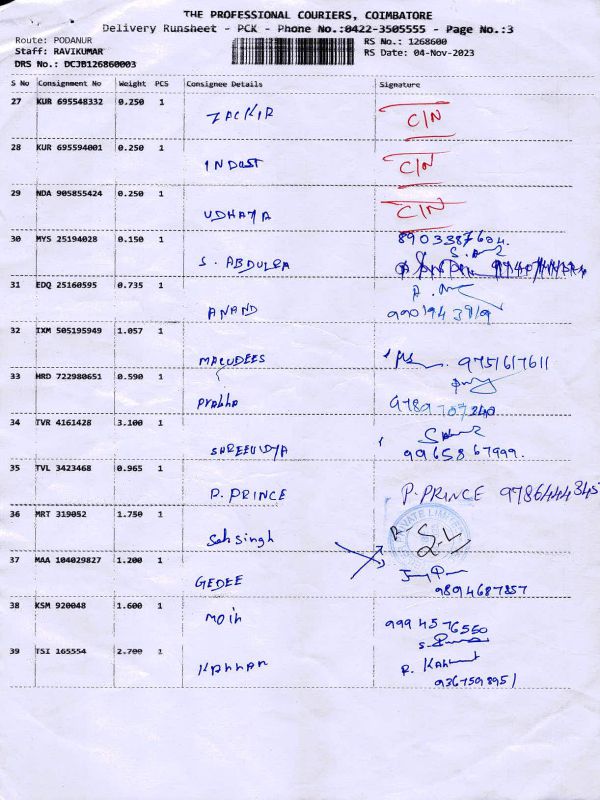 THE PROFESSIONAL COURIERS, COIMBATORE
Delivery Runsheet - PCK - Phone No.:0422-3505555 - Page No.:3
Route: PODANUR
RS No.: 1268600
Staff: RAVIKUMAR
RS Date: 04-Nov-2023
DRS No.: DCJB126860003
S No Consignment No Weight PCS Consignee Details Signature
27 KUR 695548332 0.250 1
ZACKIR C/N
28 KUR 695594001 0.250 1
INDUST C/N
29 NDA 905855424 0.250 1
UDHAYA C/N
30 MYS 25194028 0.150 1 8903387604.
S. ABDULRA
31 EDQ 25160595 0.735 1
ANAND
32 IXM 505195949 1.057 1
MALUDEES 9751617611
33 HRD 722980651 0.590 1
Prabha 9789707340
34 TVR 4161428 3.100 1
SHREEVIDYA 9965867999.
35 TVL 3423468 0.965 1
P. PRINCE P. PRINCE 9786444345
36 MRT 319052 1.750 1
PRIVATE LIMITED
Seh singh
37 MAA 104029827 1.200 1
GEDEE 9894687857
38 KSM 920048 1.600 1 9994576550
Moin
39 TSI 165554 2.700 1
KANNAN
9367598951